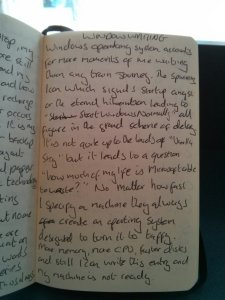 WINDOWS WRITING
Windows operating system accounts
for more moments of me writing
than any train journey. The spinning
icon which signals startup angst
or the eternal hibernation leading to
Start Windows Normally" all
figure in the grand scheme of delay.
It's not quite up to the lands of
Story" but it leads to a question
"how much of my life is Acceptable
to waste?" No matter how fast
I specify a machine they always
create an operating system
designed to turn it to taffy.
More memory, more CPU, faster disks
and still I can write this entry and
my machine is not ready
my
are still
and my
recharge
occurs
It is my
backup
and paper
technology
at
words